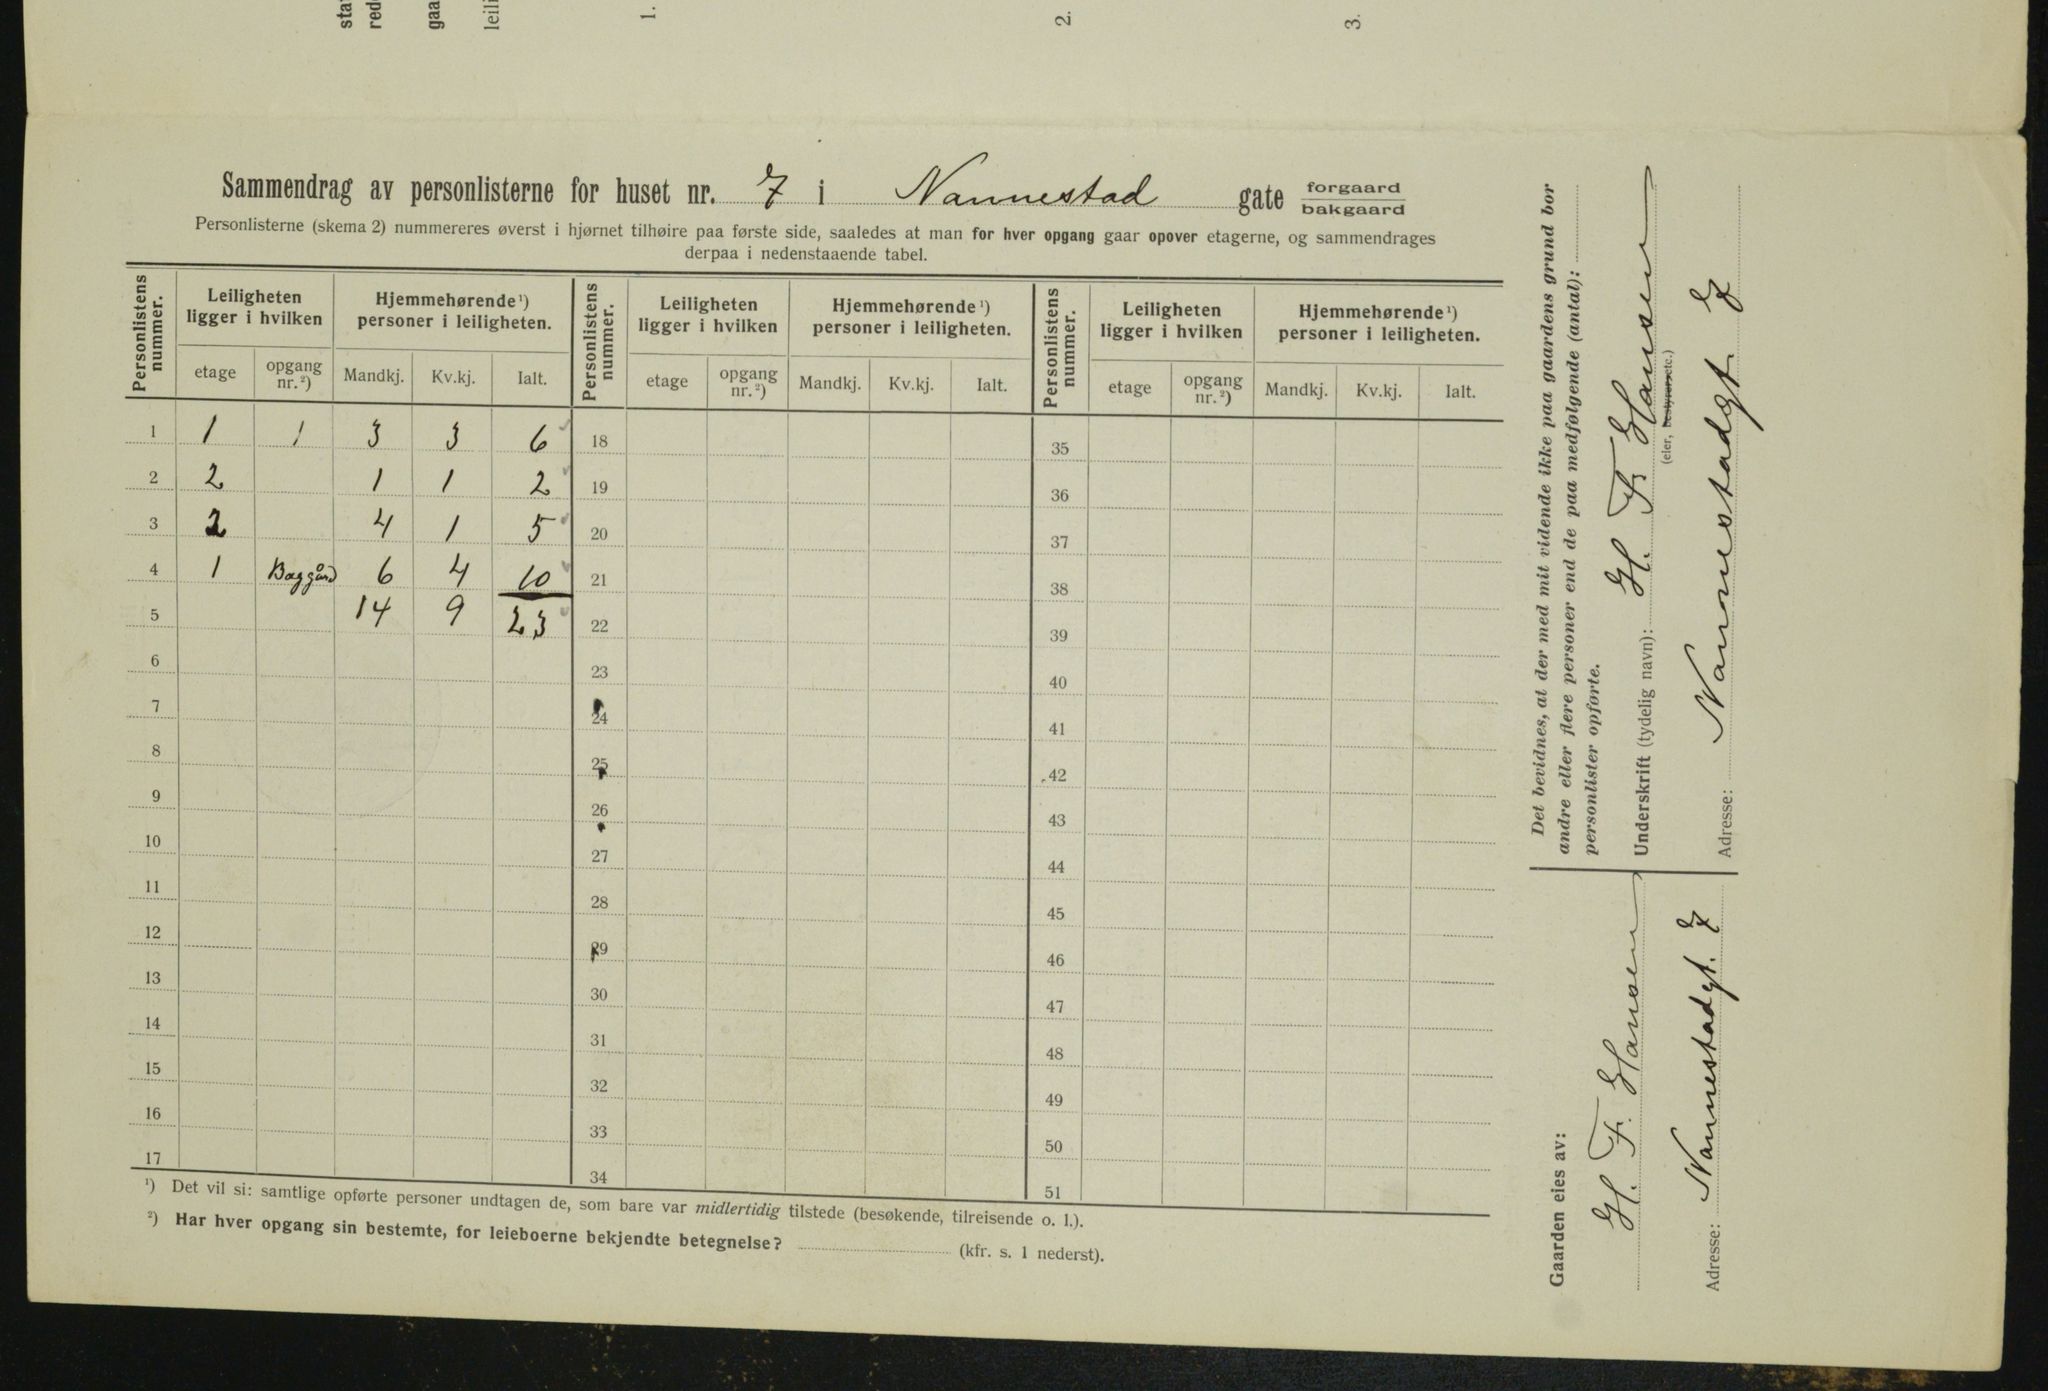 1. 2. 3.
Sammendrag av personlisterne for huset nr. 7 i Nannestad gate forgaard
bakgaard
Personlisterne (skema 2) nummereres øverst i hjørnet tilhøire paa første side, saaledes at man for hver opgang gaar opover etagerne, og sammendrages
derpaa i nedenstaaende tabel.
Personlistens nummer. Leiligheten ligger i hvilken Hjemmehørende ¹) personer i leiligheten. Personlistens nummer. Leiligheten ligger i hvilken Hjemmehørende ¹) personer i leiligheten. Personlistens nummer. Leiligheten ligger i hvilken Hjemmehørende ¹) personer i leiligheten.
etage opgang nr. ²) Mandkj. Kv.kj. Ialt. etage opgang nr. ²) Mandkj. Kv.kj. Ialt. etage opgang nr. ²) Mandkj. Kv.kj. Ialt.
1 1 1 3 3 6 18 35
2 2 1 1 2 19 36
3 2 4 1 5 20 37
4 1 Baggård 6 4 10 21 38
5 14 9 23 22 39
6 23 40
7 24 41
8 25 42
9 26 43
10 27 44
11 28 45
12 29 46
13 30 47
14 31 48
15 32 49
16 33 50
17 34 51
¹) Det vil si: samtlige opførte personer undtagen de, som bare var midlertidig tilstede (besøkende, tilreisende o. l.).
²) Har hver opgang sin bestemte, for leieboerne bekjendte betegnelse? (kfr. s. 1 nederst).
Det bevidnes, at der med mit vidende ikke paa gaardens grund bor
andre eller flere personer end de paa medfølgende (antal):
personlister opførte.
Underskrift (tydelig navn): H. F. Hansen
(eier, bestyrer etc.)
Adresse: Nannestadgt. 7
Gaarden eies av:
H. F. Hansen
Adresse: Nannestadgt. 7